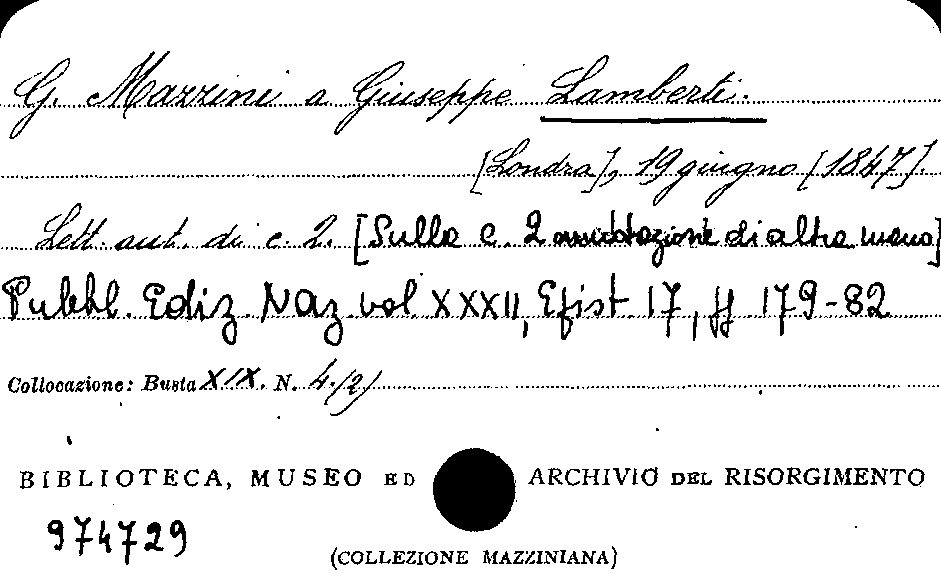 G. Mazzini a Giuseppe Lamberti.
[Londra], 19 giugno [1847].
Lett. aut. di c. 2. [Sulla c. 2 annotazione di altra mano]
Pubbl. Ediz. Naz. vol XXXII, Epist. 17, pp. 179-82
Collocazione: Busta XIX. N. 4/2/
BIBLIOTECA, MUSEO ED ARCHIVIO DEL RISORGIMENTO
974729
(COLLEZIONE MAZZINIANA)